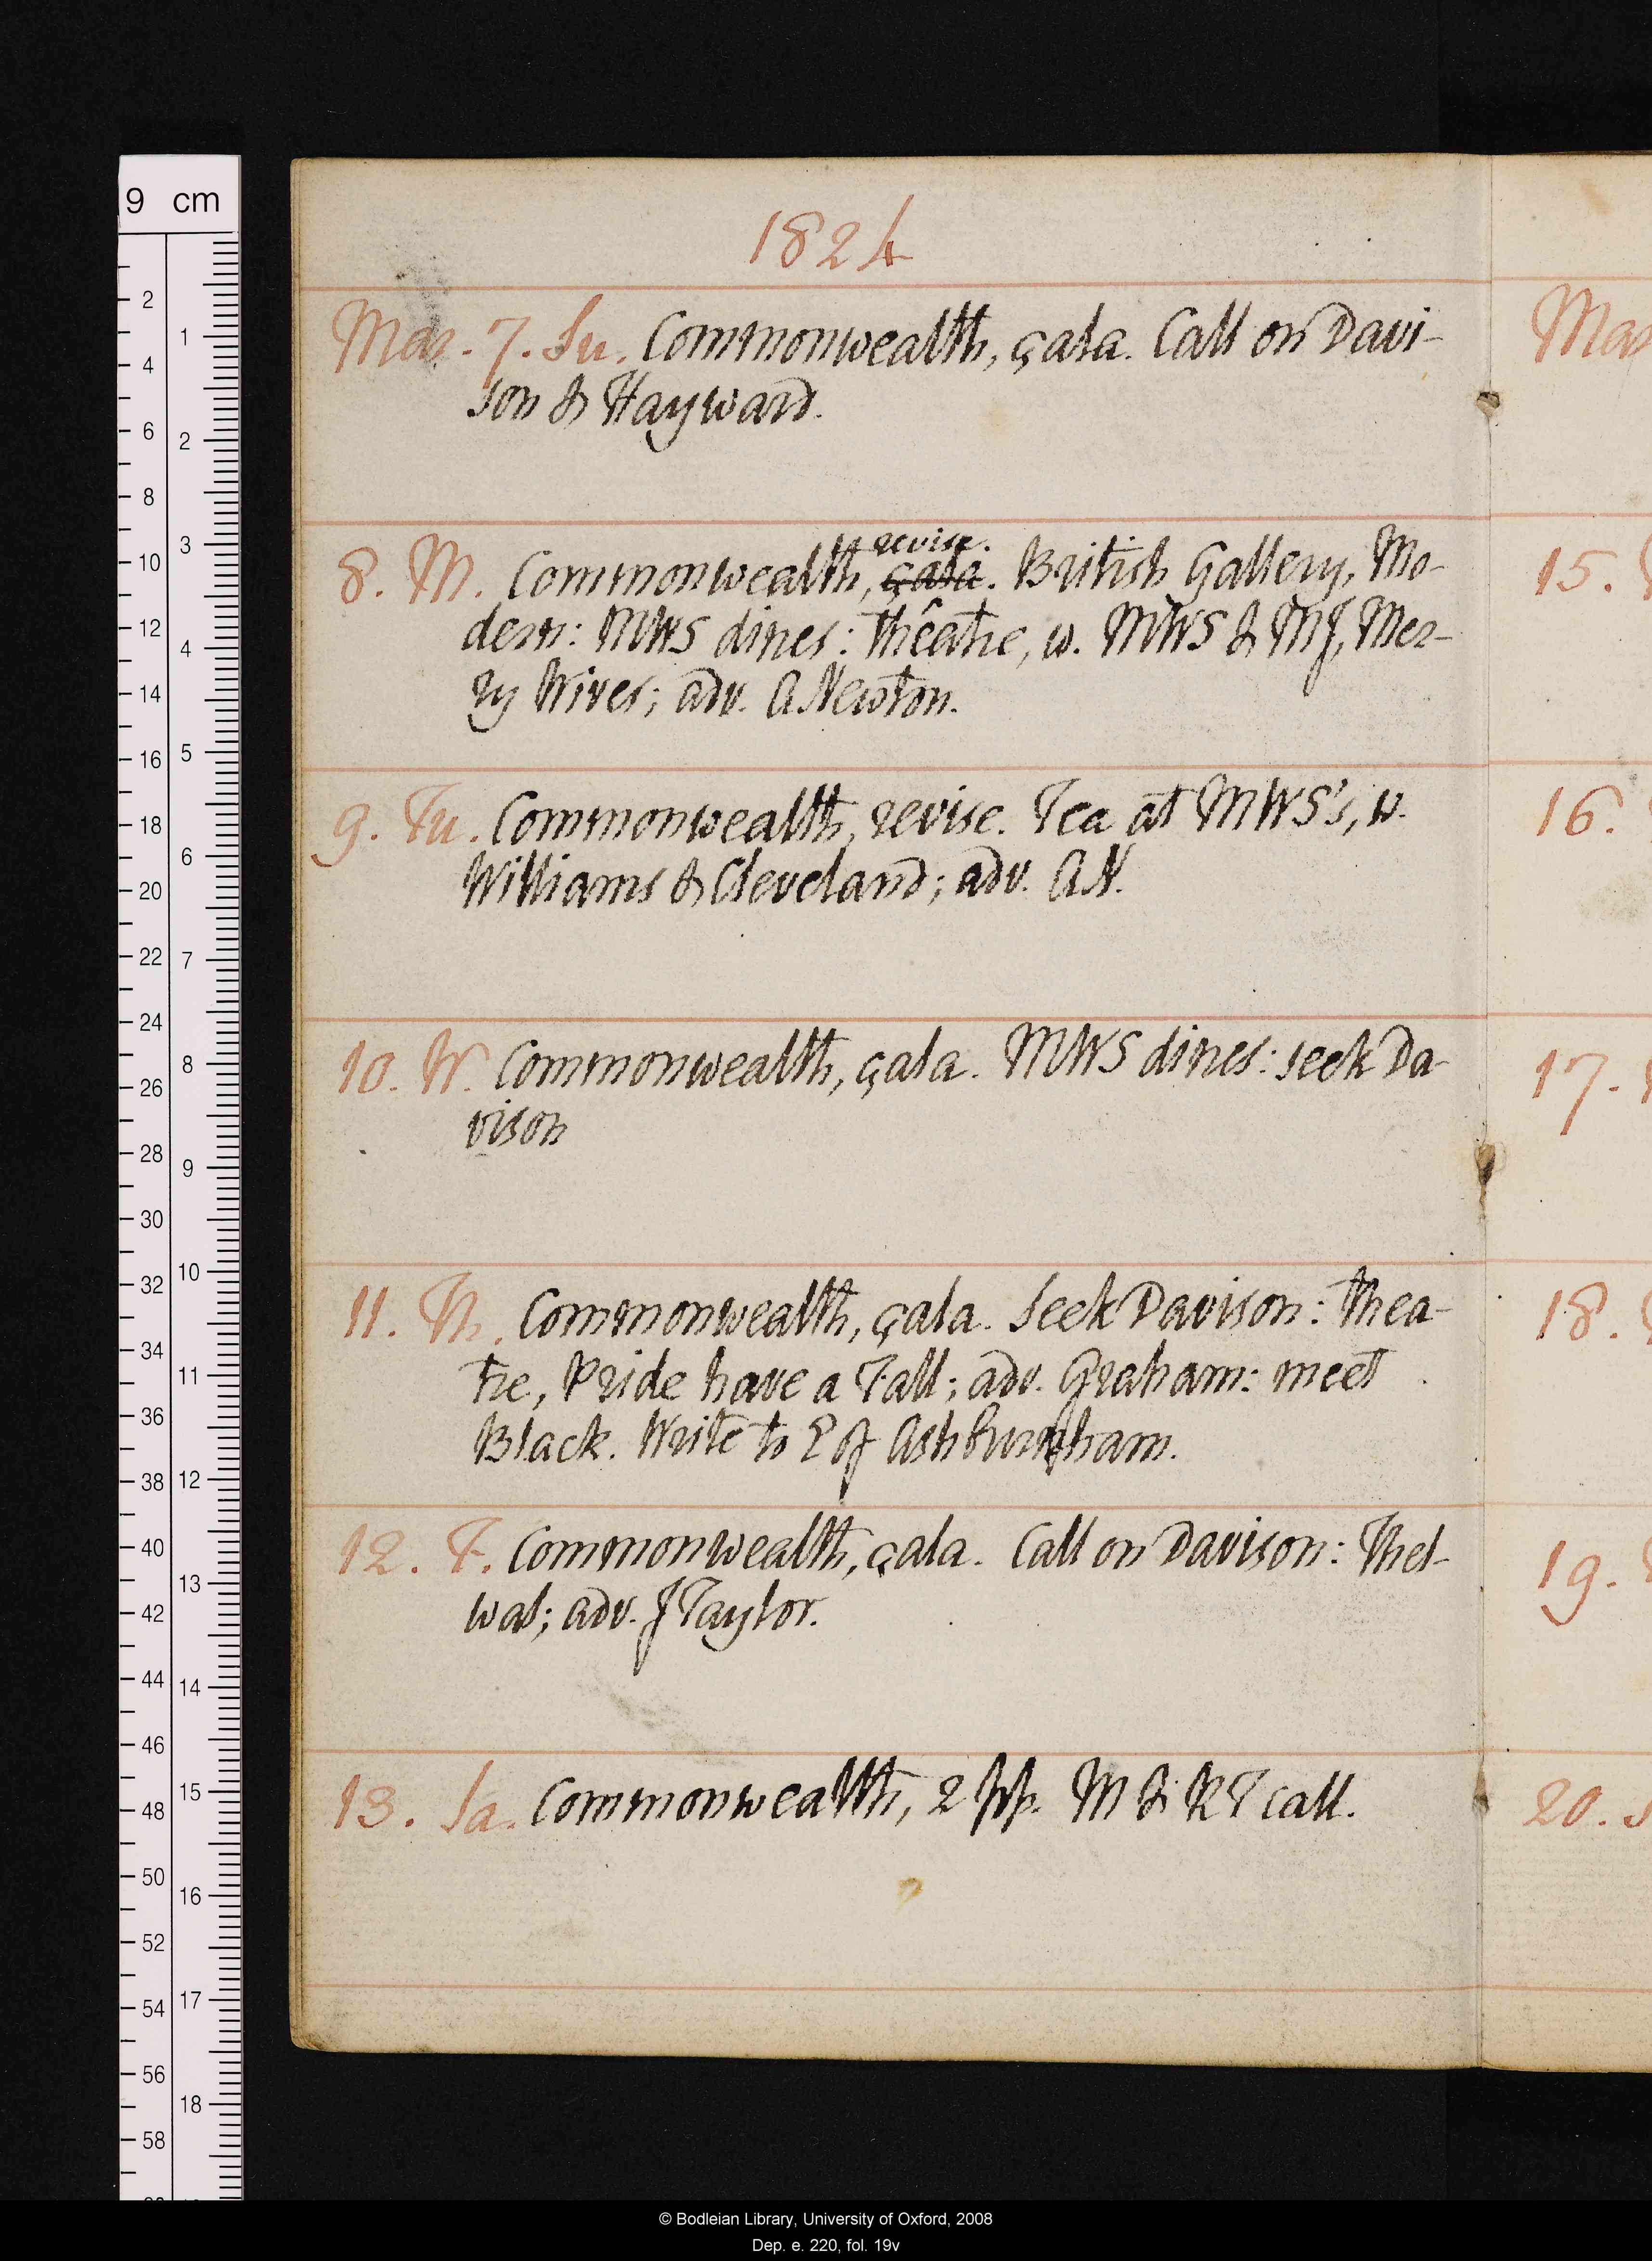 1824
Mar. 7. Su. Commonwealth, çala. Call on Davi-
son & Hayward.
revise.
8. M. Commonwealth, çala. British Gallery, Mo-
dern: MWS dines: thêatre, w. MWS & MJ, Mer-
ry Wives; adv. A Newton.
9. Tu. Commonwealth, revise. Tea at MWS's, w.
Williams & Cleveland; adv. AN.
10. W. Commonwealth, çala. MWS dines: seek Da-
vison
11. Th. Commonwealth, çala. Seek Davison: Thea-
tre, Pride have a Fall; adv. Graham: meet
Black. Write to E of Ashburnham.
12. F. Commonwealth, çala. Call on Davison: Thel-
wal; adv. J Taylor.
13. Sa. Commonwealth, 2 pp. M & RT call.
Mar
15.
16.
17.
18.
19.
20. S
9 cm
2
4
6
8
10
12
14
16
18
20
22
24
26
28
30
32
34
36
38
40
42
44
46
48
50
52
54
56
58
1
2
3
4
5
6
7
8
9
10
11
12
13
14
15
16
17
18
© Bodleian Library, University of Oxford, 2008
Dep. e. 220, fol. 19v